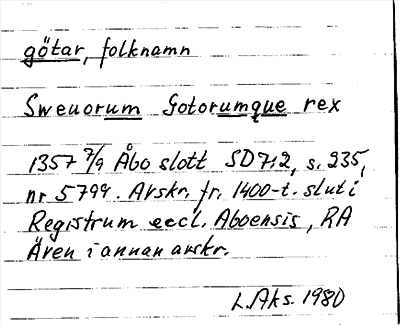 götar, folknamn
Sweuorum Gotorumque rex
1357 7/9 Åbo slott SD7:2, s. 235,
nr 5799. Avskr. fr. 1400-t. slut i
Registrum eccl. Aboensis, RA
Även i annan avskr.
L. Aks. 1980